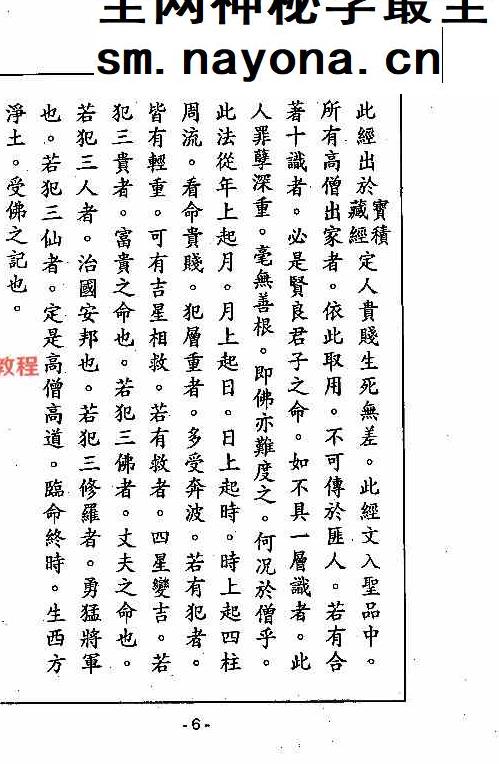 全网神秘学最全
sm.nayona.cn
此經出於寶積藏經定人貴賤生死無差。此經文入聖品中。
所有高僧出家者。依此取用。不可傳於匪人。若有合
著十識者。必是賢良君子之命。如不具一層識者。此
人罪孽深重。毫無善根。即佛亦難度之。何況於僧乎。
此法從年上起月。月上起日。日上起時。時上起四柱
周流。看命貴賤。犯層重者。多受奔波。若有犯者。
皆有輕重。可有吉星相救。若有救者。四星變吉。若
犯三貴者。富貴之命也。若犯三佛者。丈夫之命也。
若犯三人者。治國安邦也。若犯三修羅者。勇猛將軍
也。若犯三仙者。定是高僧高道。臨命終時。生西方
淨土。受佛之記也。
教程
-6-